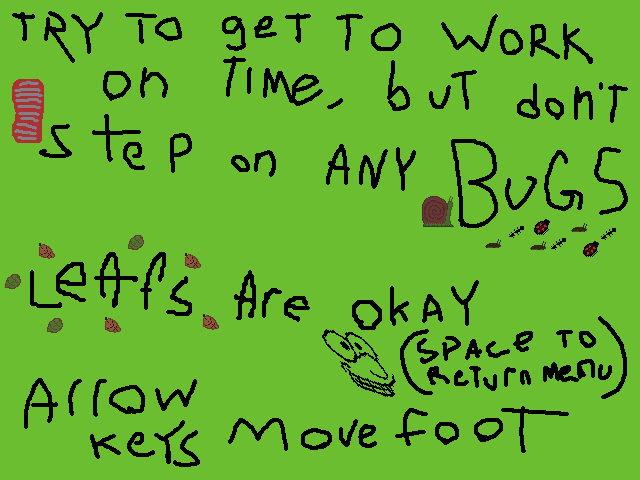 TRY TO geT TO WORK
on TIMe, buT don'T
step on ANY BUGS
LeAfs Are OKAY
(SPACe TO
ReTurn Menu)
Arrow
KeYS Move fooT